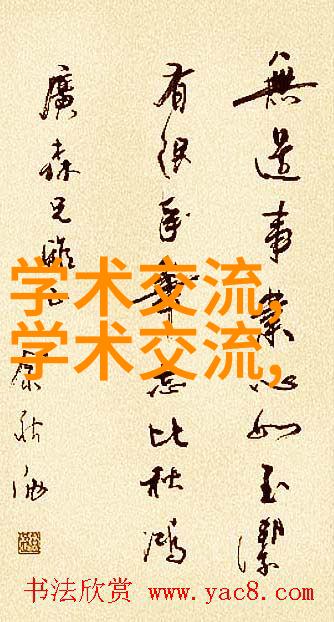 無邊事業心如玉潔
有限年華志比秋鴻
廣森兄雅
学术交流,
学术交流,
书法欣赏 www.yac8.com